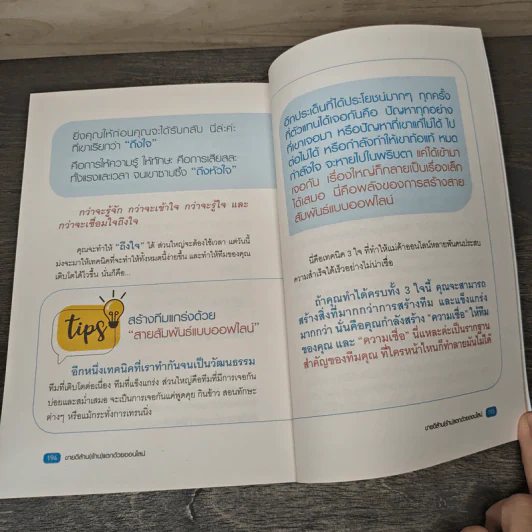 ยิ่งคุณให้ก่อนคุณจะได้รับกลับ นี่ล่ะค่ะ
ที่เขาเรียกว่า “ถึงใจ”
คือการให้ความรู้ ให้ทักษะ คือการเสียสละ
ทั้งแรงและเวลา จนเขาซาบซึ้ง “ถึงหัวใจ”
กว่าจะรู้จัก กว่าจะเข้าใจ กว่าจะรู้ใจ และ
กว่าจะเชื่อมใจถึงใจ
คุณจะทำให้ “ถึงใจ” ได้ ส่วนใหญ่จะต้องใช้เวลา แต่วันนี้
มุ่งจะมาให้เทคนิคที่จะทำให้ทั้งหมดนี้ง่ายขึ้น และทำให้ทีมของคุณ
เติบโตได้ไวขึ้น นั่นก็คือ...
tips
สร้างทีมแกร่งด้วย
“สายสัมพันธ์แบบออฟไลน์”
อีกหนึ่งเทคนิคที่เราทำกันจนเป็นวัฒนธรรม
ทีมที่เติบโตต่อเนื่อง ทีมที่แข็งแกร่ง ส่วนใหญ่คือทีมที่มีการเจอกัน
บ่อยและสม่ำเสมอ จะเป็นการเจอกันแค่พูดคุย กินข้าว สอนทักษะ
ต่างๆ หรือแม้กระทั่งการเทรนนิ่ง
196 ขายดีล้าน(ล้าน)แตกด้วยออนไลน์
อีกประเด็นที่ได้ประโยชน์มากๆ ทุกครั้ง
ที่ตัวแทนได้เจอกันคือ ปัญหาทุกอย่าง
ที่เขาเจอมา หรือปัญหาที่เขาแก้ไม่ได้ ไป
ต่อไม่ได้ หรือกำลังทำให้เขาท้อแท้ หมด
กำลังใจ จะหายไปในพริบตา แค่ได้เข้ามา
เจอกัน เรื่องใหญ่ก็กลายเป็นเรื่องเล็ก
ได้เสมอ นี่คือพลังของการสร้างสาย
สัมพันธ์แบบออฟไลน์
นี่คือเทคนิค 3 ใจ ที่ทำให้แม่ค้าออนไลน์หลายพันคนประสบ
ความสำเร็จได้เร็วอย่างไม่น่าเชื่อ
ถ้าคุณทำได้ครบทั้ง 3 ใจนี้ คุณจะสามารถ
สร้างสิ่งที่มากกว่าการสร้างทีม และแข็งแกร่ง
มากกว่า นั่นคือคุณกำลังสร้าง “ความเชื่อ” ให้ทีม
ของคุณ และ “ความเชื่อ” นี่แหละค่ะเป็นรากฐาน
สำคัญของทีมคุณ ที่ใครหน้าไหนก็ทำลายมันไม่ได้
ขายดีล้าน(ล้าน)แตกด้วยออนไลน์